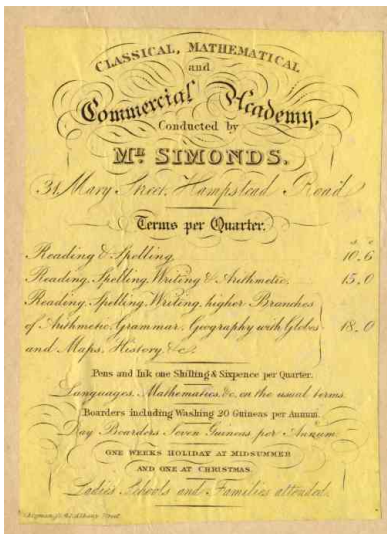 CLASSICAL, MATHEMATICAL
and
Commercial Academy,
Conducted by
MR. SIMONDS,
31, Mary Street, Hampstead Road
Terms per Quarter.
s d
Reading & Spelling 10..6
Reading, Spelling, Writing & Arithmetic 15..0
Reading, Spelling, Writing, higher Branches
of Arithmetic, Grammar, Geography with Globes 18..0
and Maps, History, &c.
Pens and Ink one Shilling & Sixpence per Quarter.
Languages, Mathematics, &c. on the usual terms.
Boarders including Washing 20 Guineas per Annum.
Day Boarders Seven Guineas per Annum.
ONE WEEKS HOLIDAY AT MIDSUMMER
AND ONE AT CHRISTMAS
Ladies Schools and Families attended.
Albany Street